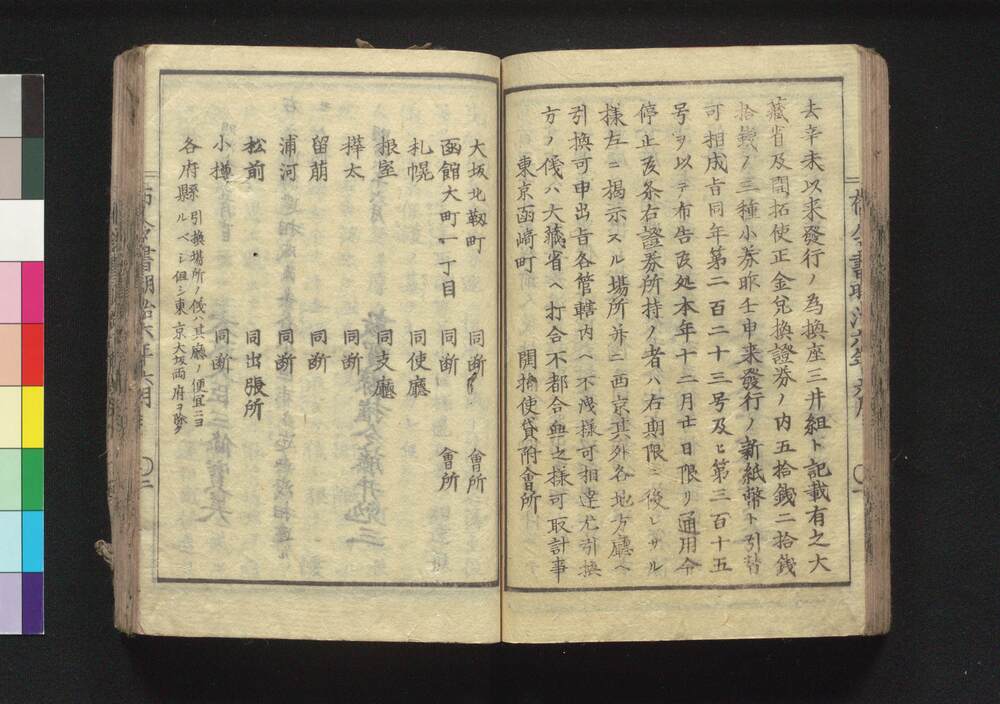 去辛未以来發行ノ為換座三井組ト記載有之大
藏省及開拓使正金兌換證券ノ内五拾錢二拾錢
拾錢ノ三種小券昨壬申来發行ノ新紙幣ト引替
可相成旨同年第二百二十三号及ヒ第三百十五
号ヲ以テ布告及処本年十二月廿日限リ通用令
停止候条右證券所持ノ者ハ右期限ニ後レサル
様左ニ掲示スル場所并ニ西京其外各地方廳ヘ
引換可申出旨各管轄内ヘ不洩様可相達尤引換
方ノ儀ハ大藏省ヘ打合不都合無之様可取計事
東京函崎町 開拓使貸附會所
大坂北靱町 同断 會所
函館大町一丁目 同断 會所
札幌 同使廳
根室 同支廳
樺太 同断
留萠 同断
浦河 同断
松前 同出張所
小樽 同断
各府縣引換場所ノ儀ハ其廳ノ便宜ニヨ
ルベシ但シ東京大坂両府ヲ除ク
布令書明治六年六月 〇一
布令書明治六年六月 〇二